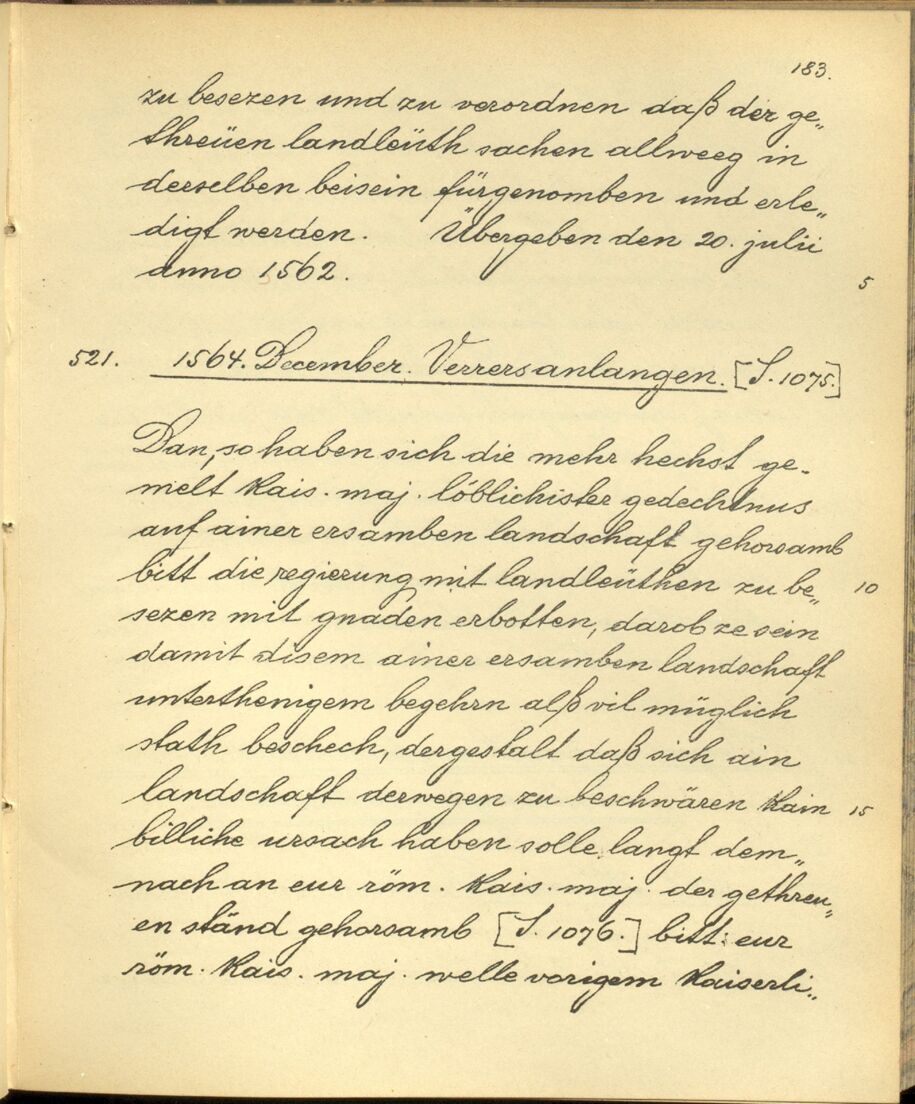 183.
zu besezen und zu verordnen daß der ge„
threüen landleüth sachen allweeg in
derselben beisein fürgenomben und erle„
digt werden. Übergeben den 20. julii
anno 1562.
5
521. 1564. December. Verrers anlangen. [S. 1075.]
Dan, so haben sich die mehr hechst ge-
melt kais. maj. löblichister gedechtnus
auf ainer ersamben landschaft gehorsamb
bitt die regierung mit landleüthen zu be„ 10
sezen mit gnaden erbotten, darob ze sein
damit disem ainer ersamben landschaft
unterthenigem begehrn alß vil müglich
stath beschech, dergestalt daß sich ain
landschaft derwegen zu beschwären kain 15
billiche ursach haben solle. langt dem„
nach an eur röm. kais. maj. der gethreu„
en ständ gehorsamb [S. 1076.] bitt: eur
röm. kais. maj. welle vorigem kaiserli„